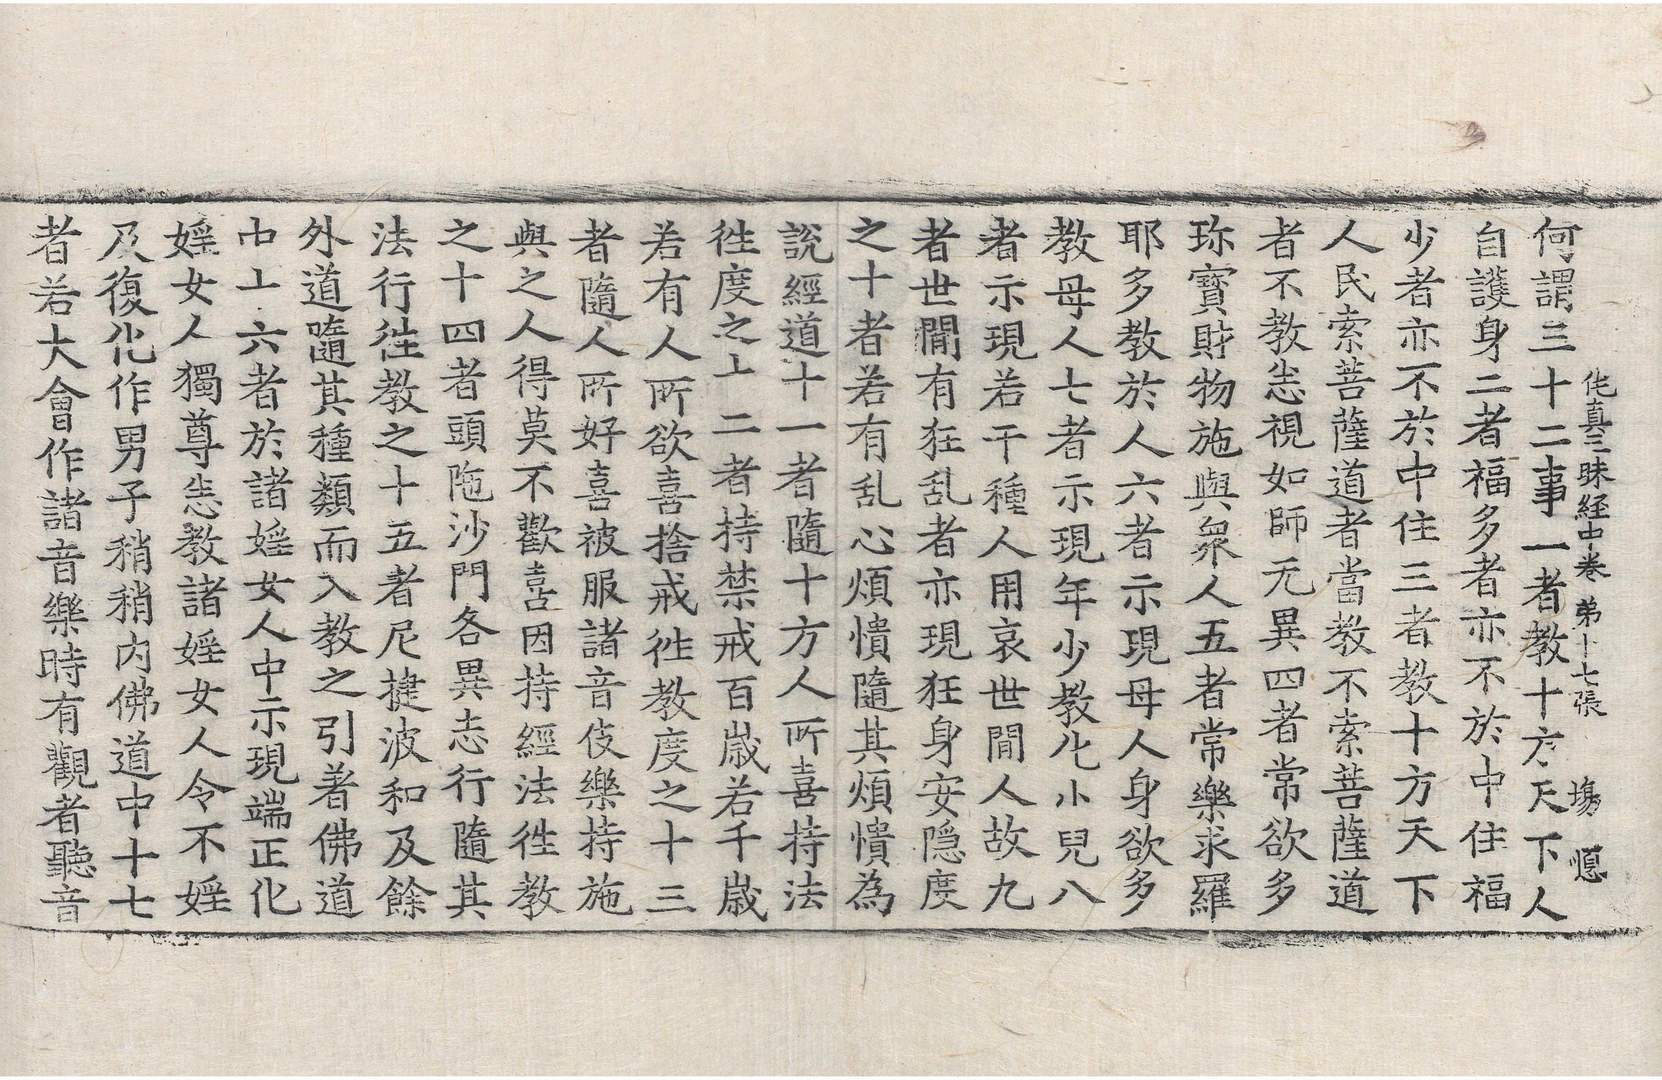 佗真三昧経中卷 第十七張 塲 𢡟
何謂三十二事一者教十方天下人
自護身二者福多者亦不於中住福
少者亦不於中住三者教十方天下
人民索菩薩道者當教不索菩薩道
者不教悉視如師无異四者常欲多
珎寳財物施與衆人五者常樂求羅
耶多教於人六者示現母人身欲多
教母人七者示現年少教化小兒八
者示現若干種人用哀世閒人故九
者世閒有狂乱者亦現狂身安隐度
之十者若有乱心煩憒隨其煩憒為
說經道十一者隨十方人所喜持法
徃度之十二者持禁戒百歳若千歳
若有人所欲喜捨戒徃教度之十三
者隨人所好喜被服諸音伎樂持施
與之人得莫不歡喜因持經法徃教
之十四者頭陁沙門各異志行隨其
法行徃教之十五者尼揵波和及餘
外道隨其種類而入教之引著佛道
中十六者於諸婬女人中示現端正化
婬女人獨尊悉教諸婬女人令不婬
及復化作男子稍稍内佛道中十七
者若大會作諸音樂時有觀者聽音